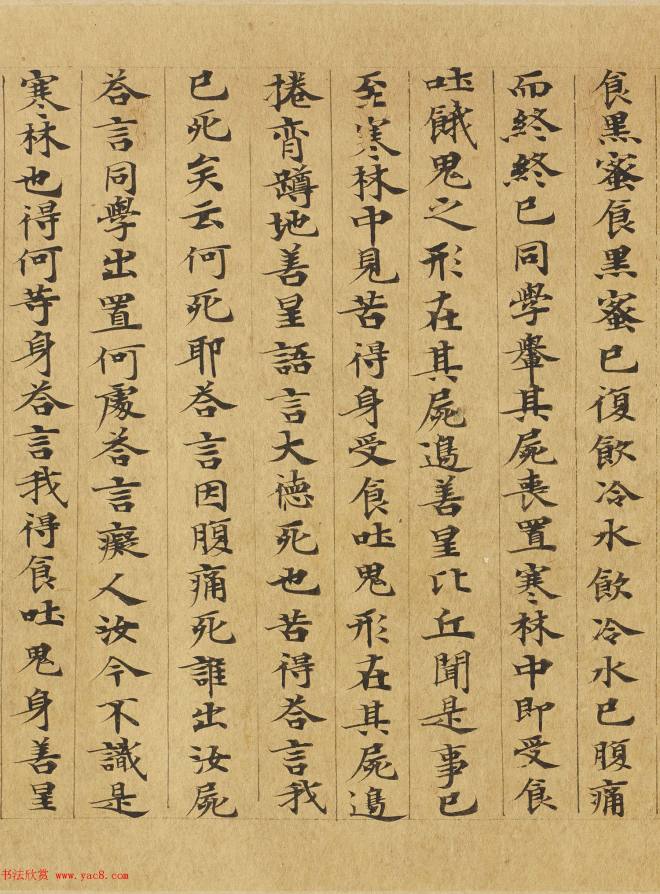 食黑蜜食黑蜜已復飲冷水飲冷水已腹痛
而終終已同學轝其屍喪置寒林中即受食
吐餓鬼之形在其屍邊善星比丘聞是事已
至寒林中見苦得身受食吐鬼形在其屍邊
捲脊蹲地善星語言大德死也苦得荅言我
已死矣云何死耶荅言因腹痛死誰出汝屍
荅言同學出置何處荅言癡人汝今不識是
寒林也得何等身荅言我得食吐鬼身善星
书法欣赏 www.yac8.com